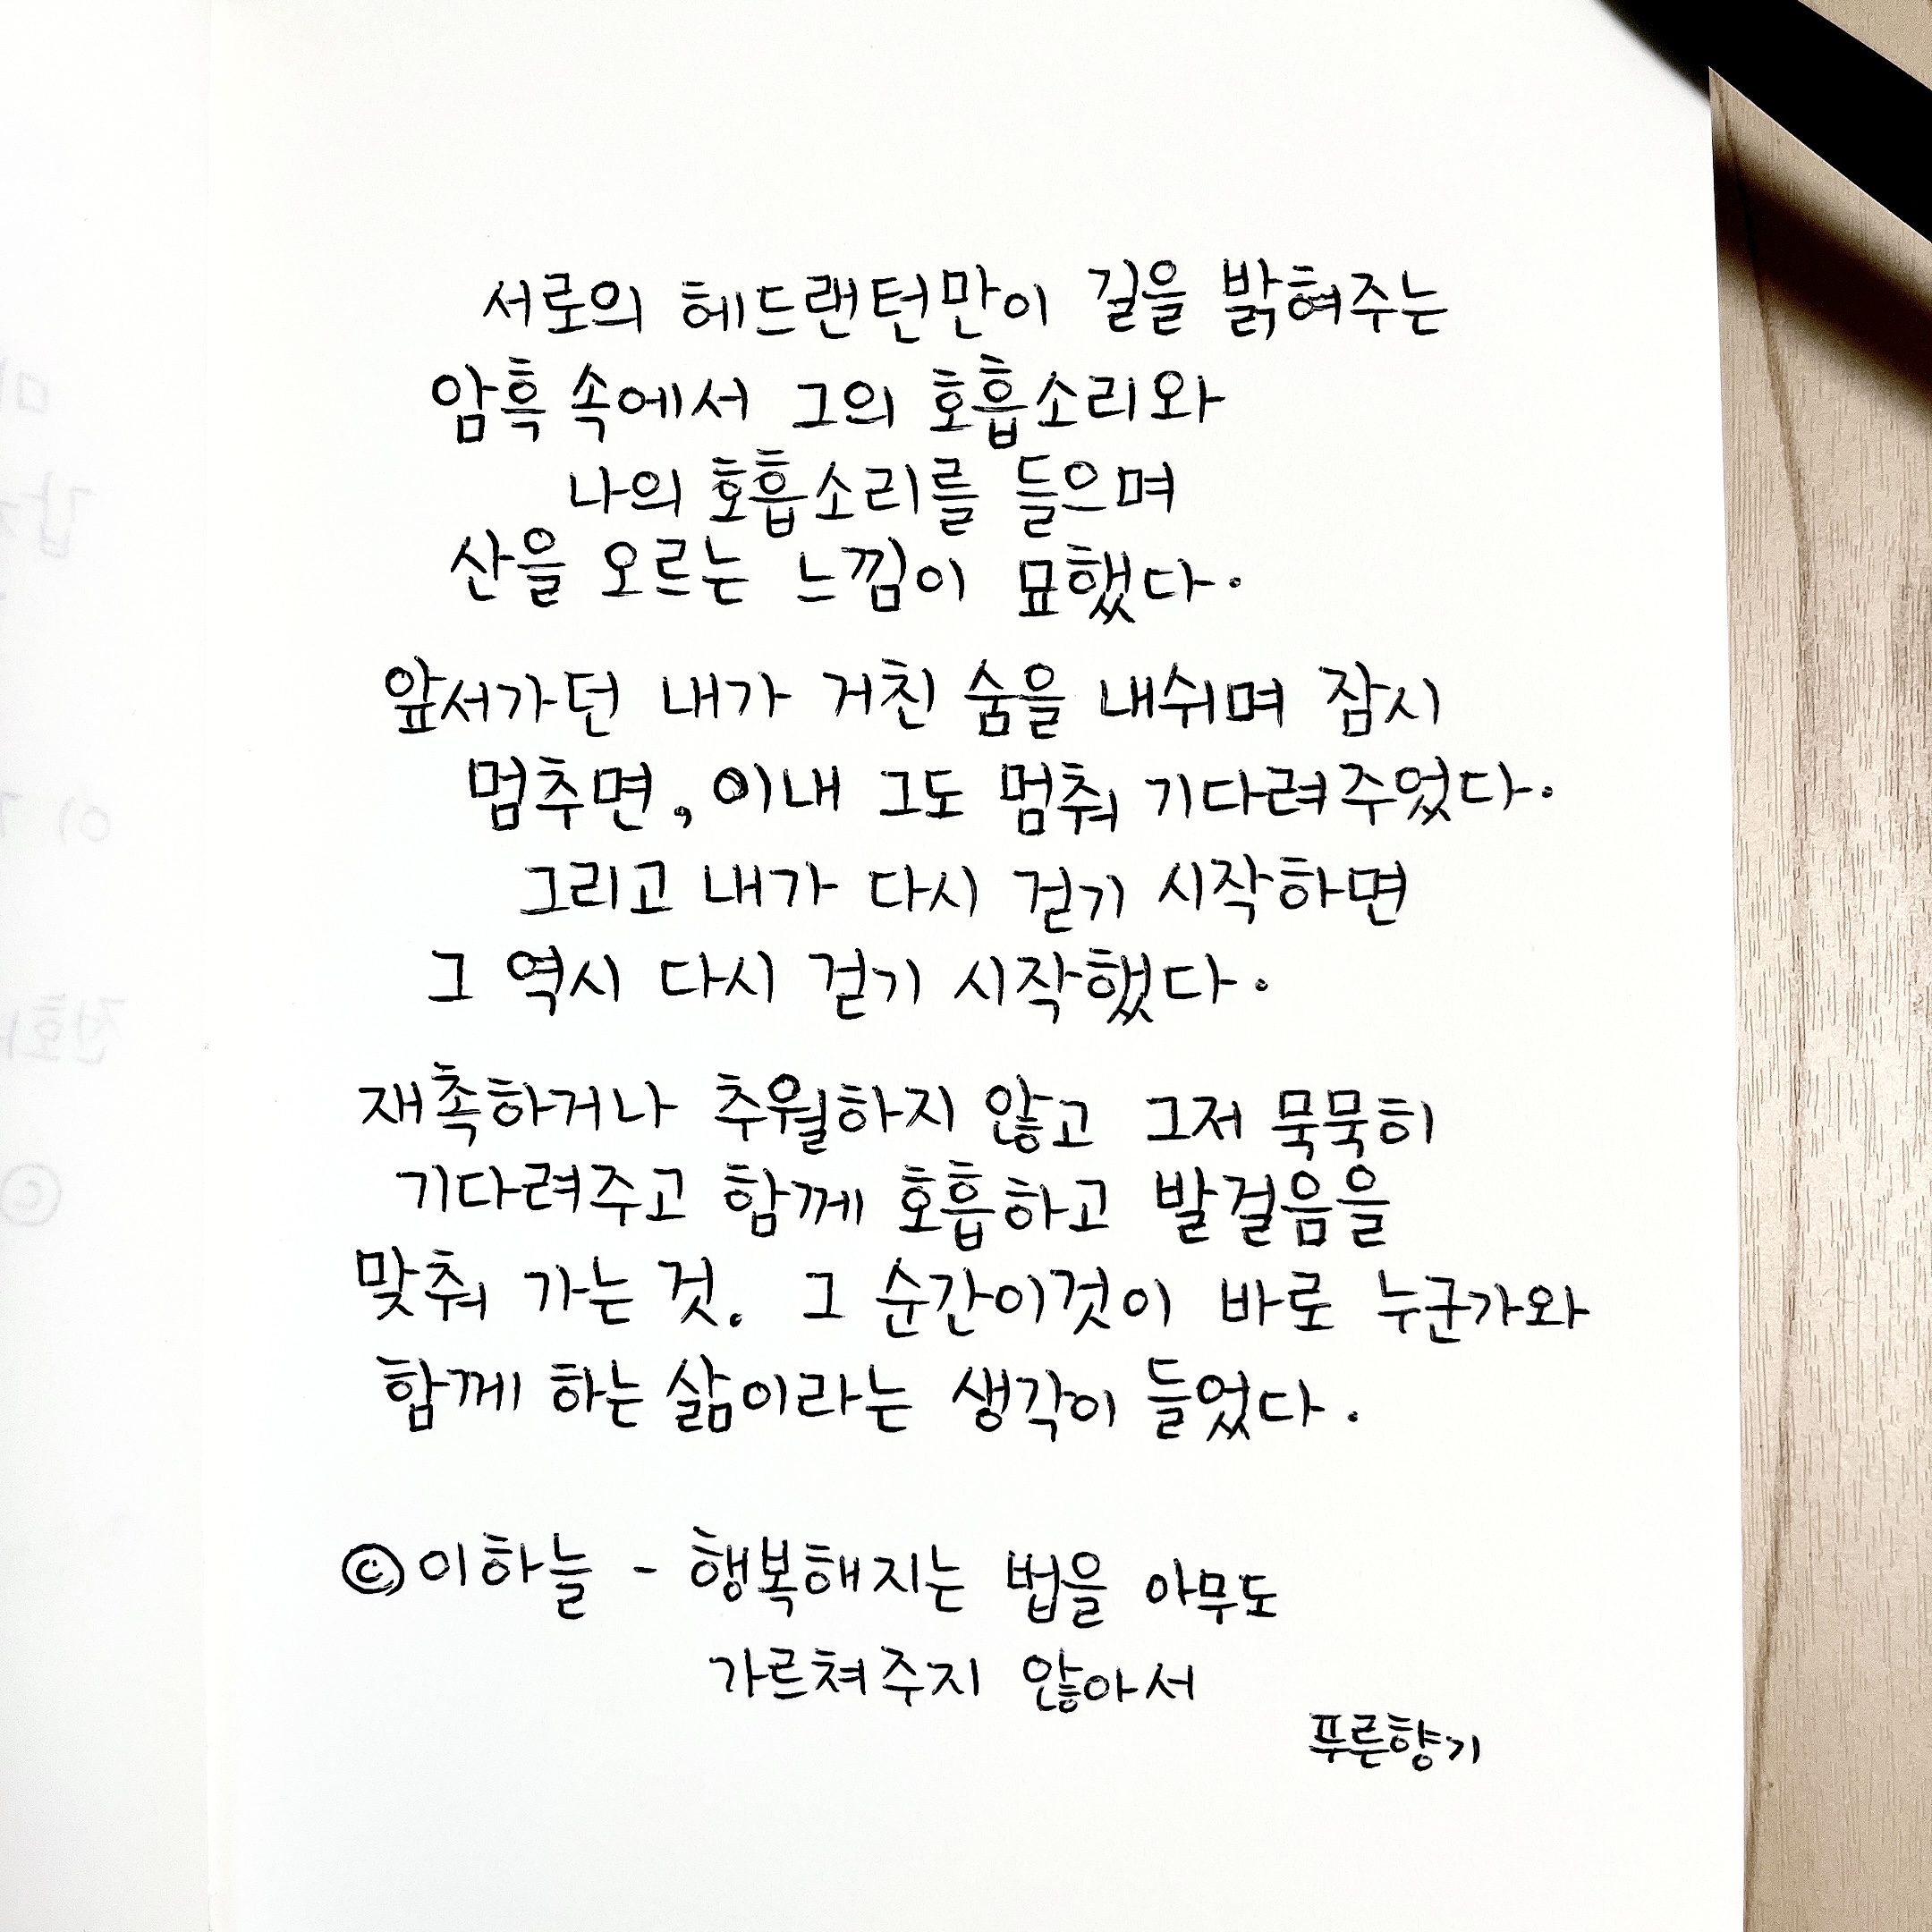 서로의 헤드랜턴만이 길을 밝혀주는
암흑 속에서 그의 호흡소리와
나의 호흡소리를 들으며
산을 오르는 느낌이 묘했다.
앞서가던 내가 거친 숨을 내쉬며 잠시
멈추면, 이내 그도 멈춰 기다려주었다.
그리고 내가 다시 걷기 시작하면
그 역시 다시 걷기 시작했다.
재촉하거나 추월하지 않고 그저 묵묵히
기다려주고 함께 호흡하고 발걸음을
맞춰 가는 것. 그 순간이것이 바로 누군가와
함께 하는 삶이라는 생각이 들었다.
©이하늘 - 행복해지는 법을 아무도
가르쳐주지 않아서
푸른향기